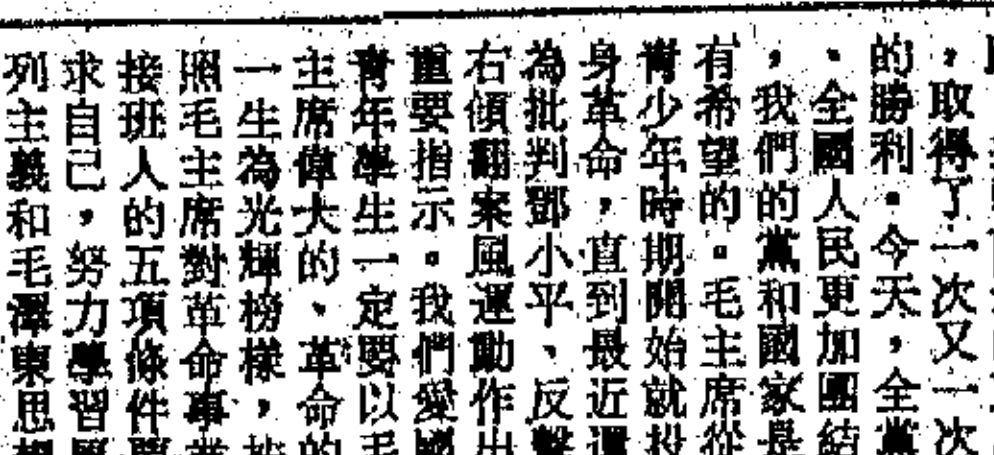 ，取得了一次又一次
的勝利。今天，全黨
、全國人民更加團結
，我們的黨和國家是
有希望的。毛主席從
青少年時期開始就投
身革命，直到最近還
為批判鄧小平、反擊
右傾翻案風運動作出
重要指示。我們愛國
青年學生一定要以毛
主席偉大的、革命的
一生為光輝榜樣，按
照毛主席對革命事業
接班人的五項條件要
求自己，努力學習馬
列主義和毛澤東思想